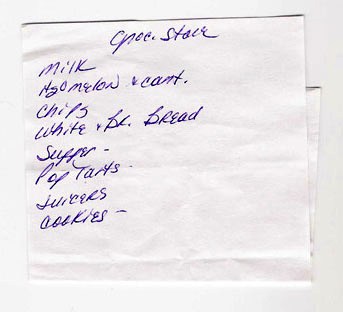 Groc. Store
Milk
H2O melon & cant.
Chips
White & Br. Bread
Supper -
Pop Tarts -
Juicers
Cookies -